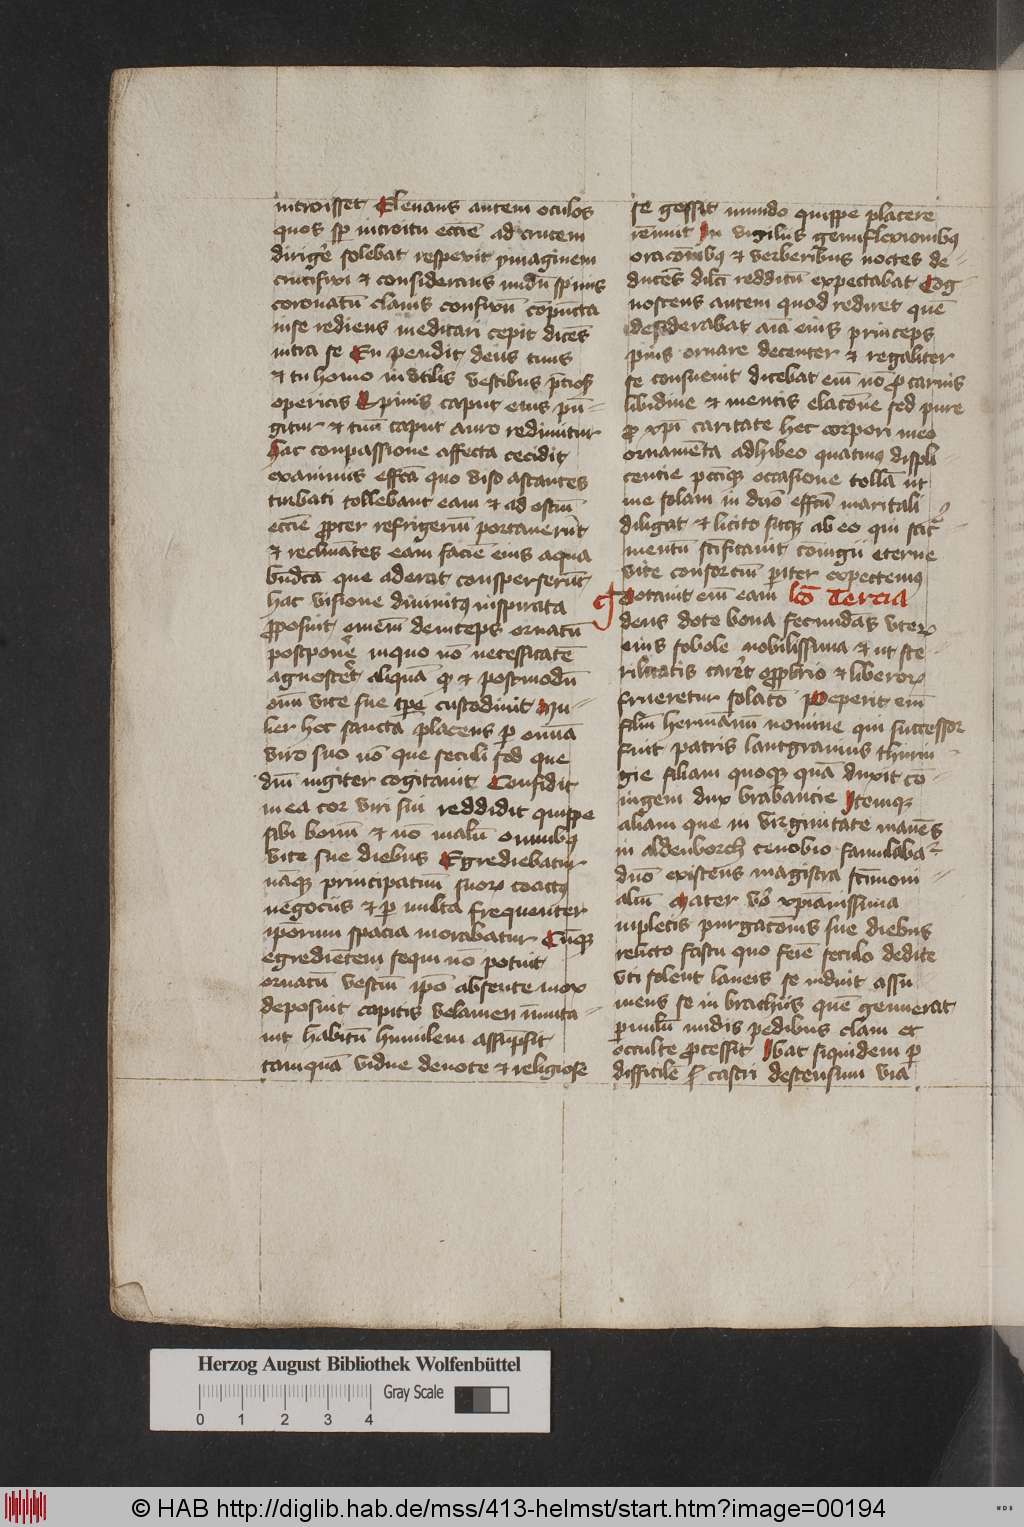 introisset Eleuans autem oculos
quos sp introitu eccie ad crucem
dirige solebat respexit ymaginem
crucifixi et considerans nudu spinis
coronatu clauis confixu copucta
inse rediens meditari cepit dices
intra se En pendit deus tuus
et tu homo inutilis vestibus pcios
opericis Spinis caput eius pu-
gitur et tuu caput auro redimitur
hac conpassione affecta cecidit
exanimis effca quo viso astantes
turbati tollebant eam et ad ostiu
eccie propter refrigeriu portauerut
et reclinates eam facie eius aqua
bndca que aderat consperserut
hac visione diuinitus inspirata
proposuit omem deinceps ornatu
postpone inquo no necessitate
agnoscet aliqua qd et postmodu
oim vite sue tpe custodiuit Mu-
lier hec sancta placens p omia
viro suo no que seculi sed que
dni iugiter cogitauit Confidit
in ea cor viri sui reddidit quippe
sibi bonu et no malu omnibus
vite sue diebus Egrediebatur
naque principatuu suor coactus
negociis et p multa frequenter
iporum spacia morabatur Cuque
egrediente sequi no potuit
ornatu vestiu ipo absente mox
deposuit capitis velamen imuta-
uit habitu humilem assupsit
tamqua vidue deuote et religiose
se gessit mundo quippe placere
renuit In vigiliis genuflexionibus
oracoibus et verberibus noctes de-
duces dilci redditu expectabat Cog-
noscens autem quod rediret que
desiderabat aia eius princeps
pius ornare decenter et regaliter
se consueuit dicebat eni no pro carnis
libidine et mentis elacoe sed pure
pro xpi caritate hec corpori meo
ornameta adhibeo quatinus displi
centie pccique occasione tolla ut
me solam in dno effcu maritali
diligat et licito sitque ab eo qui
mentu scificauit coniugii eterne
vite consortiu piter expectemus
Dotauit eni eam lco Tercia
deus dote bona fecundas vter
eius sobole nobilissima et ut ste
rilitatis caret opprobrio et liberor
frueretur solacio Peperit eni
filiu hermannu nomine qui successor
fuit patris lantgrauius thurin-
gie filiam quoque qua duxit co-
iugem dux brabancie Itemque
aliam que in virginitate manes
in aldenborch cenobio famulaba
dno existens magistra scimoni-
aliu Mater vo xpianissima
inpletis purgacois sue diebus
relicto fastu quo feie seculo dedite
vti solent laneis se induit assu
mens se in brachiis que genuerat
puulu nudis pedibus clam et
occulte processit Ibat siquidem p
difficile castri descensum via
Herzog August Bibliothek Wolfenbüttel
Gray Scale
0 1 2 3 4
© HAB http://diglib.hab.de/mss/413-helmst/start.htm?image=00194